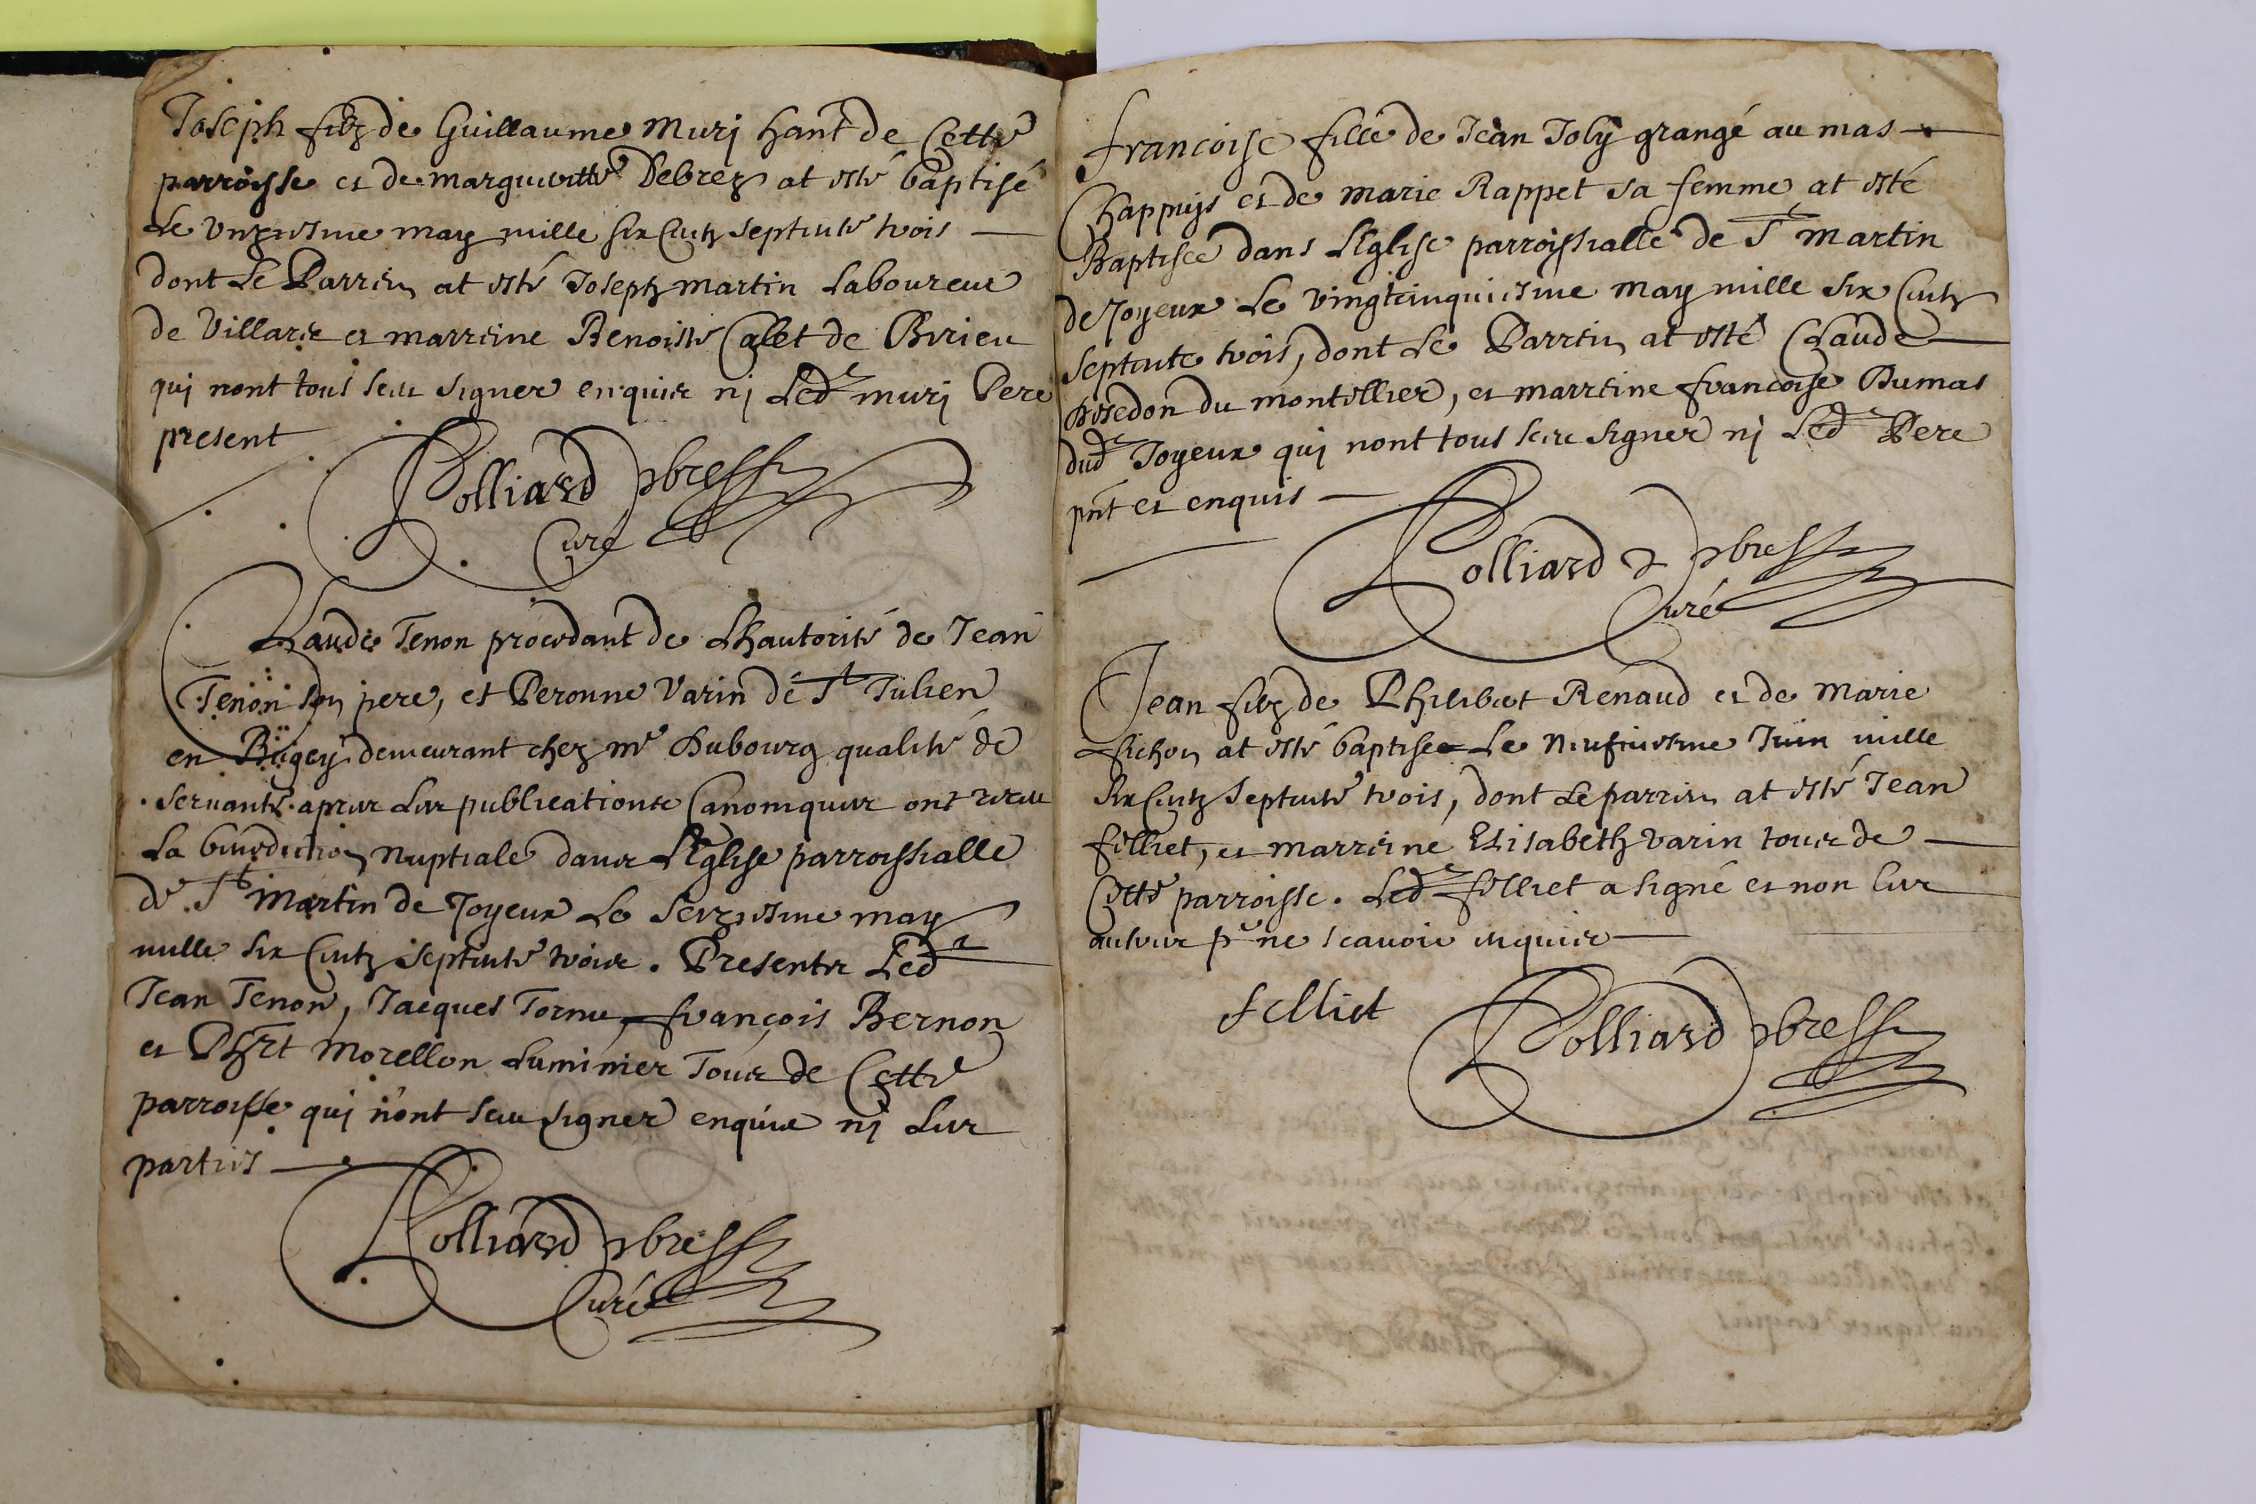 Joseph filz de Guillaume Muri hant de Cette
parroisse et de margueritte Debrez at esté baptisé
Le unziesme may mille six Centz septente trois
dont Le Parrein at esté Joseph martin Laboureur
de Villars et marreine Benoiste Calet de Birieu
qui nont tous sceu signer enquis ni Led muri Pere
present
Rolliard pbre
Curé
Claude Tenon procedant de Lhautorité de Jean
Tenon son pere, et Peronne Varin de St Julien
en Bugey demeurant chez mr Dubourg qualité de
servante apres Les publications Canoniques ont receu
La benediction Nuptiale dans LEglise parroissialle
de St Martin de Joyeux Le seiziesme may
mille six Centz septente trois. Presents Led
Jean Tenon, Jacques Tornu, françois Bernon
et Phrt Morellon Luminier Tous de Cette
parroisse qui n'ont sceu signer enquis ni Les
parties
Rolliard pbre
Curé
francoise fille de Jean Joly grangé au mas
Chappuys et de marie Rappet sa femme at esté
Baptisée dans LEglise parroissialle de St Martin
de Joyeux Le vingtcinquiesme may mille six Centz
septente trois, dont Le Parrein at esté Claude
du montellier, et marreine francoise Dumas
dud Joyeux qui nont tous sceu signer ni Led Pere
pnt et enquis
Rolliard pbre
Curé
Jean filz de Philibert Renaud et de Marie
fichon at esté baptisé Le Neufiesme Juin mille
six Centz septente trois, dont Le parrein at esté Jean
filliet, et marreine Elisabeth varin tous de
Cette parroisse. Led filliet a signé et non Les
autres pr ne scavoir enquis
felliet
Rolliard pbre